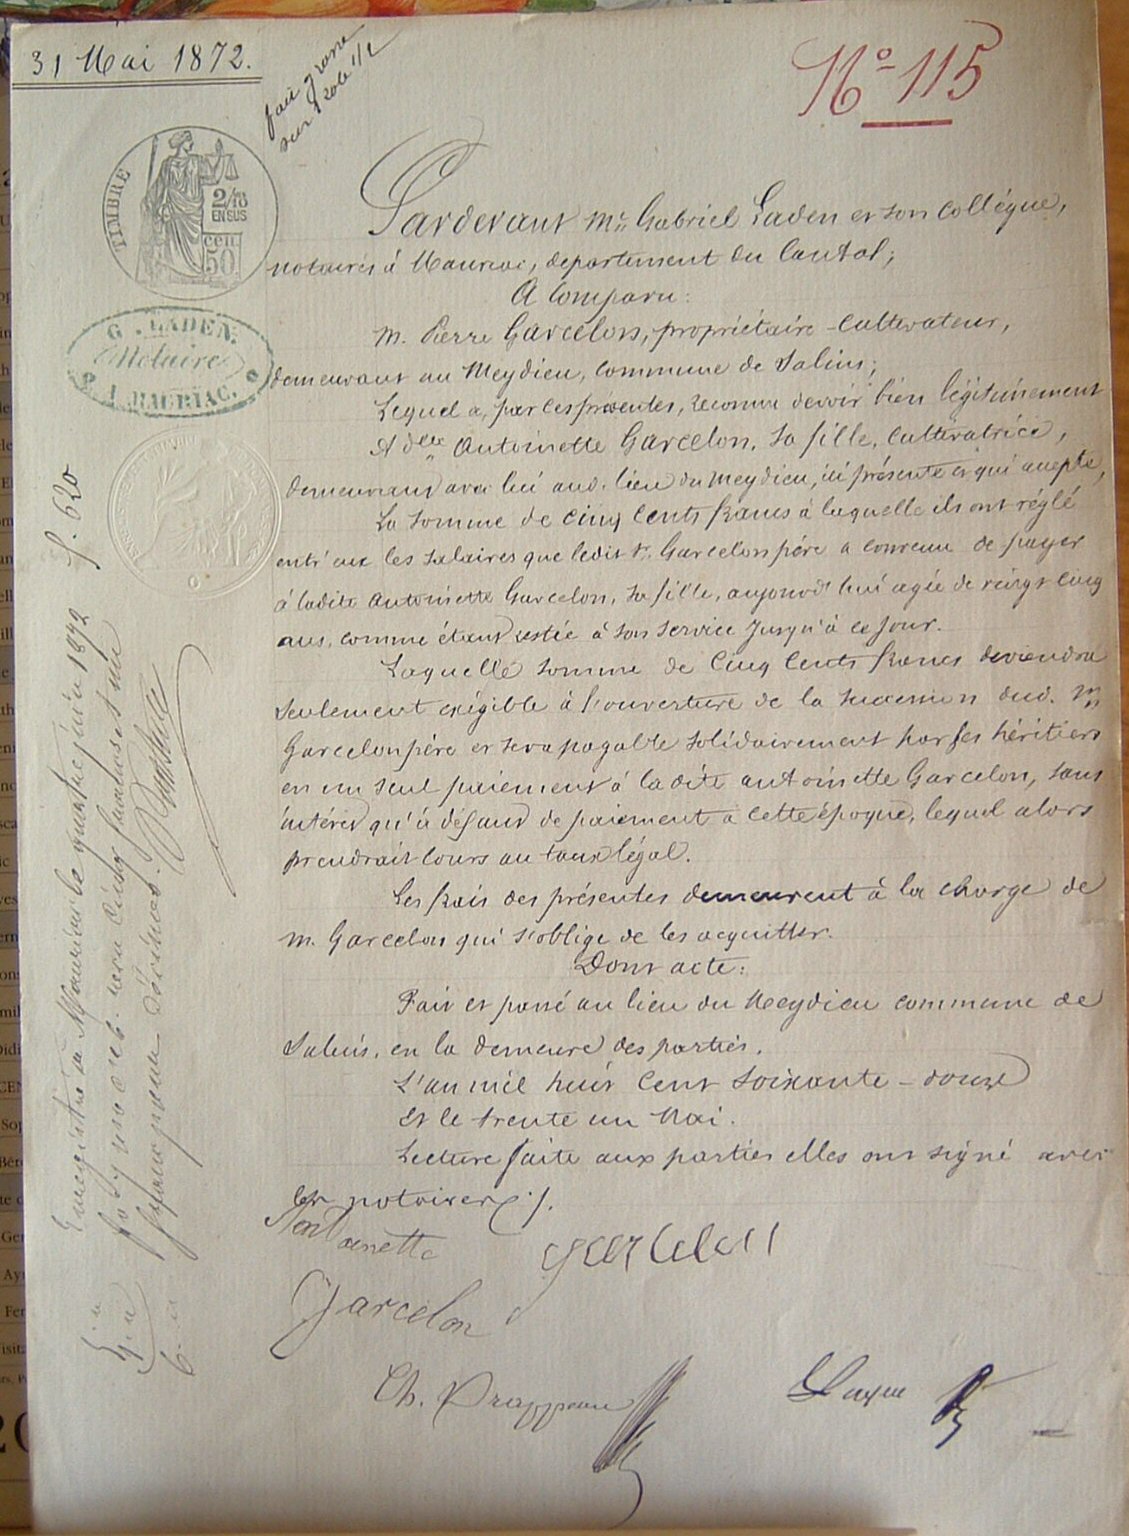 31 Mai 1872.
N° 115
TIMBRE
2/10
EN SUS
cen
50
G. LADEN.
Notaire
A MAURIAC.
Pardevant Me Gabriel Laden et son collègue,
notaires à Mauriac, département du Cantal;
A Comparu:
M. Pierre Garcelon, propriétaire-cultivateur,
demeurant au Meydieu, commune de Salins;
Lequel a, par ces présentes, reconnu devoir bien légitimement
A delle Antoinette Garcelon, sa fille, cultivatrice,
demeurant avec lui aud. lieu du Meydieu, ici présente et qui accepte,
La somme de cinq cents francs à laquelle ils ont réglé
entr'eux les salaires que ledit Sr. Garcelon père a convenu de payer
à ladite Antoinette Garcelon, sa fille, aujourd'hui agée de vingt cinq
ans, comme étant restée à son service jusqu'à ce jour.
Laquelle somme de cinq cents francs deviendra
seulement exigible à l'ouverture de la succession dud. M
Garcelon père et sera payable solidairement par ses héritiers
en un seul paiement à la dite Antoinette Garcelon, sans
intérêt qu'à défaut de paiement à cette époque, lequel alors
prendrait cours au taux légal.
Les frais des présentes demeurent à la charge de
M. Garcelon qui s'oblige de les acquitter.
Dont acte:
Fait et passé au lieu du Meydieu commune de
Salins, en la demeure des parties.
L'an mil huit cent soixante-douze
et le trente un Mai.
Lecture faite aux parties elles ont signé avec
les notaires ./.
Antoinette
Garcelon
garcelon
Ch.
Enregistré à Mauriac le quatre juin 1872 f. 620